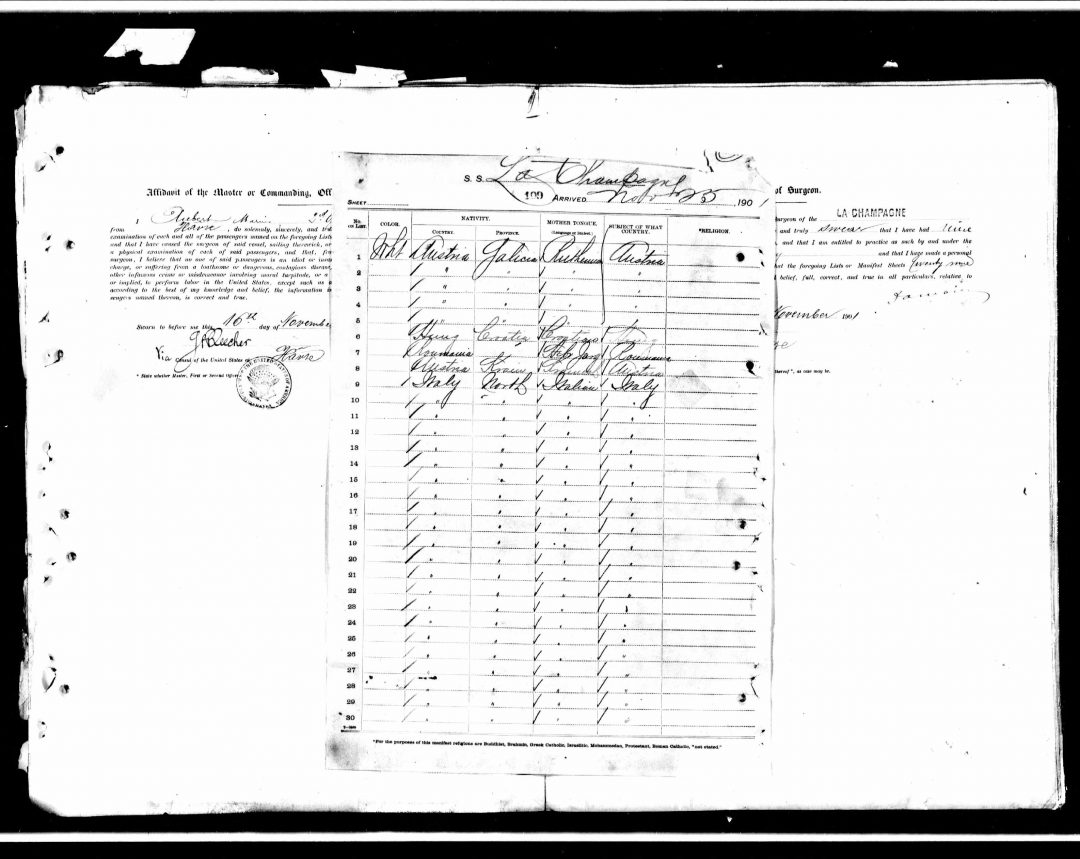 S. S. La Champagne
SHEET 199 ARRIVED Nov 25, 1901
Affidavit of the Master or Commanding, Off
I
from Havre, do solemnly, sincerely, and
examination of each and all of the passengers named on the foregoing Lists
and that I have caused the surgeon of said vessel, sailing therewith, or
a physical examination of each of said passengers, and that, from
surgeon, I believe that no one of said passengers is an idiot or
charge, or suffering from a loathsome or dangerous, contagious disease,
other infamous crime or misdemeanor involving moral turpitude, or a
or implied, to perform labor in the United States, except such as
according to the best of my knowledge and belief, the information
sengers named therein, is correct and true.
Sworn to before me this 16th day of November
Vice Consul of the United States Havre
* State whether Master, First or Second Officer
No. ON LIST. COLOR. NATIVITY. MOTHER TONGUE. SUBJECT OF WHAT COUNTRY. *RELIGION.
COUNTRY. PROVINCE. (Language or Dialect)
1 Austria Galicia Austria
2 " " " "
3 " " "
4 " " "
5
6 Hung Croatia
7 Roumania Roumania
8 Austria Krain Austria
9 Italy North Italian Italy
10 " " " "
11 " " " "
12 " " " "
13 " " " "
14 " " " "
15 " " " "
16 " " " "
17 " " " "
18 " " " "
19 " " " "
20 " " " "
21 " " " "
22 " " " "
23 " " " "
24 " " " "
25 " " " "
26 " " " "
27 " " " "
28 " " " "
29 " " " "
30 " " " "
*For the purposes of this manifest religions are Buddhist, Brahmin, Greek Catholic, Israelitic, Mohammedan, Protestant, Roman Catholic, "not stated."
of Surgeon.
surgeon of the LA CHAMPAGNE
and truly swear that I have had nine
, and that I am entitled to practice as such by and under the
and that I have made a personal
that the foregoing Lists or Manifest Sheets twenty nine
belief, full, correct, and true in all particulars, relative to
November 1901
thereof", as case may be.